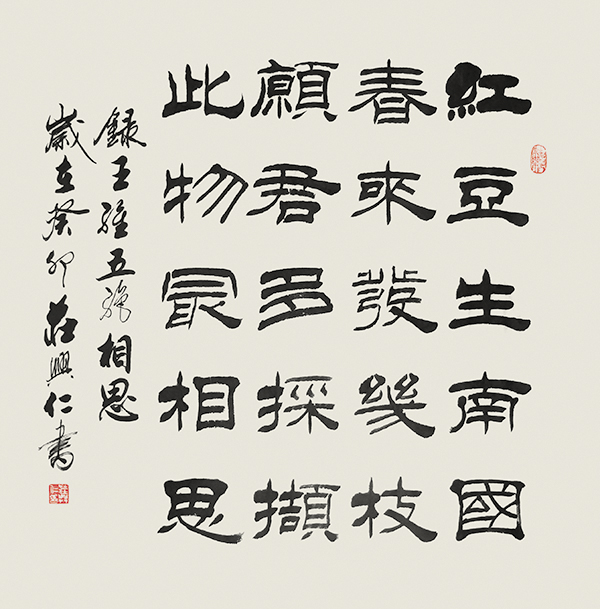 紅豆生南國
春來發幾枝
願君多採擷
此物最相思
錄王維五絕相思
歲在癸卯莊興仁書